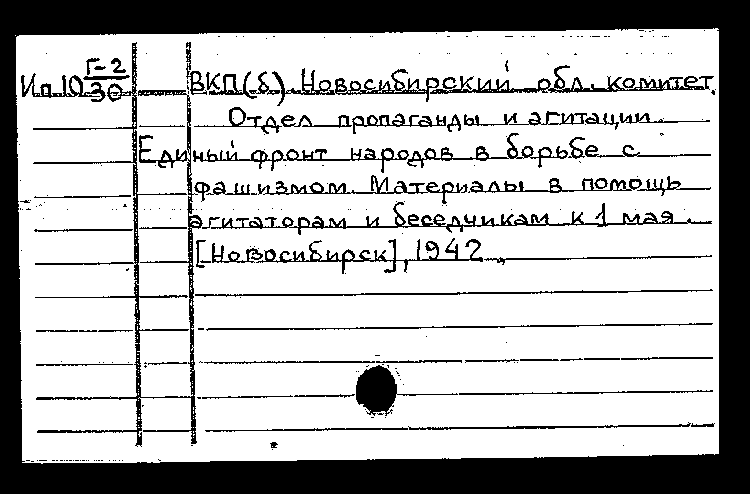 Ип 10 Г-2/30 ВКП(б). Новосибирский обл. комитет.
Отдел пропаганды и агитации.
Единый фронт народов в борьбе с
фашизмом. Материалы в помощь
агитаторам и беседчикам к 1 мая.
[Новосибирск], 1942.